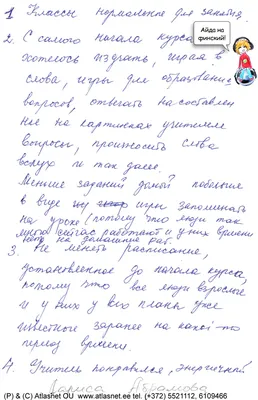 1 Классы нормальные для занятия.
Айда на
финский!
2. С самого начала курса
хотелось играть, играя в
слова, игры для образования
вопросов, отвечать на составлен
ные на картинках учителем
вопросы, произносить слова
вслух и так далее.
Меньше заданий домой побольше
в виде игры запоминать
на уроке (потому что люди так
сейчас работают и у них времени
нет на домашние раб.
3. Не менять расписание,
установленное до начала курса,
потому что все люди взрослые
и у них у всех планы уже
известные заранее на какой-то
период времени.
4. Учитель понравился, энергичный
Лариса Абрамова
(P) & (C) Atlasnet OU www.atlasnet.ee tel. (+372) 5521112, 6109466